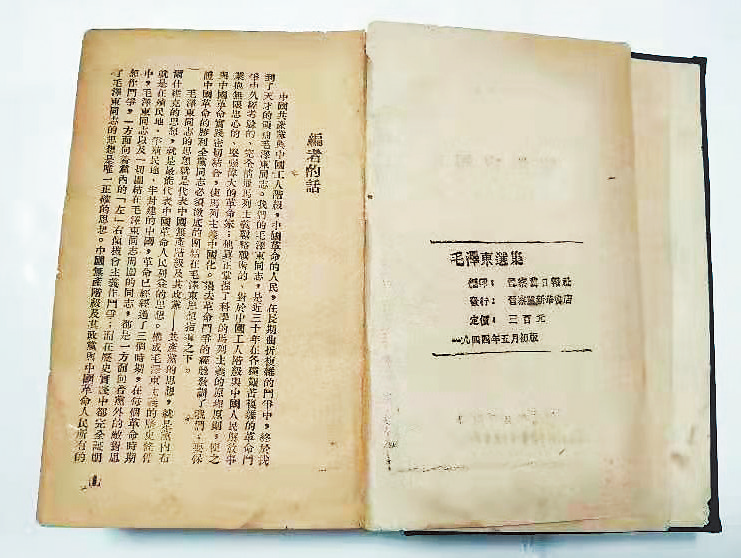 毛澤東選集
編印：晉察冀日報社
發行：晉察冀新華書店
定價：三百元
一九四四年五月初版
編者的話
中國共產黨與中國工人階級，中國革命的人民，在長期曲折複雜的鬥爭中，終於找
到了天才的領袖毛澤東同志。我們的毛澤東同志，是近三十年在各種艱苦複雜的革命鬥
爭中久經考驗的、完全精通馬列主義戰略戰術的、對於中國工人階級與中國人民解放事
業抱無限忠心的、堅強偉大的革命家；他眞正掌握了科學的馬列主義的原理原則，使之
與中國革命實踐密切結合，使馬列主義中國化。過去革命鬥爭的經驗教訓了我們：要保
證中國革命的勝利全黨同志必須澈底的團結在毛澤東思想指導之下。
毛澤東同志的思想就是代表中國無產階級及其政黨——共產黨的思想，就是黨內布
爾什維克的思想，就是最能代表中國革命人民利益的思想。構成毛澤東主義的歷史條件
就是在殖民地、半殖民地、半封建的中國，革命已經經過了三個時期，在每個革命時期
中，毛澤東同志以及一切團結在毛澤東同志周圍的同志，都是一方面向着黨外的敵對思
想作鬥爭，一方面向着黨內的「左」右傾機會主義作鬥爭；而在歷史實踐中都完全証明
了毛澤東同志的思想是唯一正確的思想。中國無產階級及其政黨與中國革命人民所有的